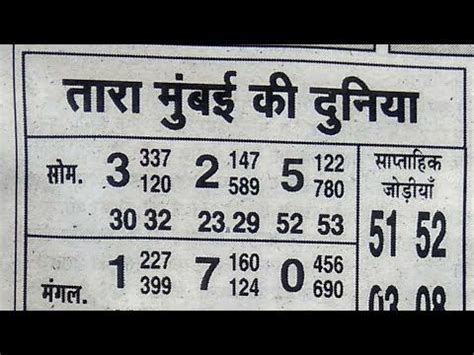 तारा मुंबई की दुनिया
सोम. 3 337 2 147 5 122
120 589 780
30 32 23.29 52 53
मंगल. 1 227 7 160 0 456
399 124 690
साप्ताहिक
जोड़ीयाँ
51 52
03 08